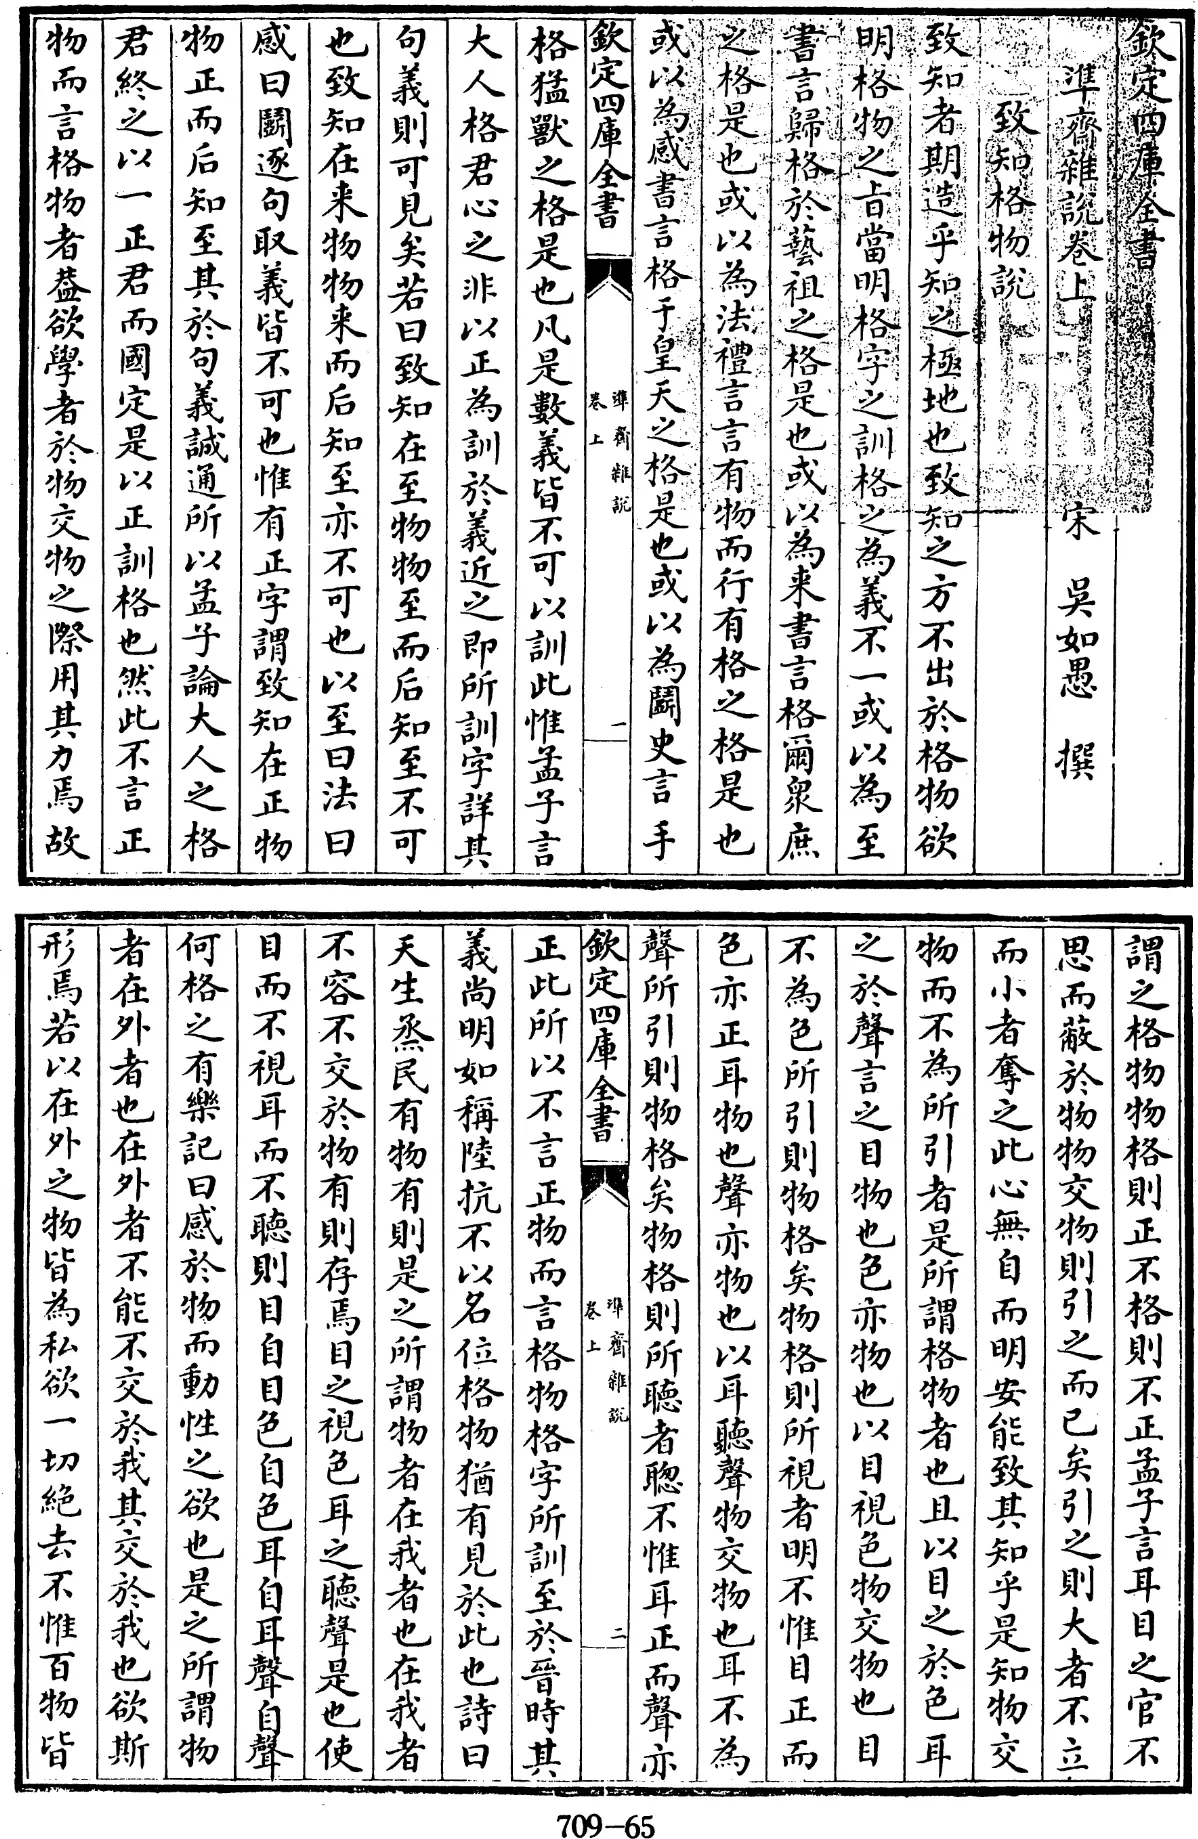 欽定四庫全書
準齋雜說卷上
宋 吳如愚 撰
致知格物說
致知者期造乎知之極地也致知之方不出於格物欲
明格物之旨當明格字之訓格之為義不一或以為至
書言歸格於藝祖之格是也或以為来書言格爾衆庶
之格是也或以為法禮言言有物而行有格之格是也
或以為感書言格于皇天之格是也或以為鬭史言手
欽定四庫全書
準齋雜說
卷上
一
格猛獸之格是也凡是數義皆不可以訓此惟孟子言
大人格君心之非以正為訓於義近之即所訓字詳其
句義則可見矣若曰致知在至物物至而后知至不可
也致知在来物物来而后知至亦不可也以至曰法曰
感曰鬭逐句取義皆不可也惟有正字謂致知在正物
物正而后知至其於句義誠通所以孟子論大人之格
君終之以一正君而國定是以正訓格也然此不言正
物而言格物者葢欲學者於物交物之際用其力焉故
謂之格物物格則正不格則不正孟子言耳目之官不
思而蔽於物物交物則引之而已矣引之則大者不立
而小者奪之此心無自而明安能致其知乎是知物交
物而不為所引者是所謂格物者也且以目之於色耳
之於聲言之目物也色亦物也以目視色物交物也目
不為色所引則物格矣物格則所視者明不惟目正而
色亦正耳物也聲亦物也以耳聽聲物交物也耳不為
聲所引則物格矣物格則所聴者聰不惟耳正而聲亦
欽定四庫全書
準齋雜說
卷上
二
正此所以不言正物而言格物格字所訓至於晉時其
義尚明如稱陸抗不以名位格物猶有見於此也詩曰
天生烝民有物有則是之所謂物者在我者也在我者
不容不交於物有則存焉目之視色耳之聴聲是也使
目而不視耳而不聴則目自目色自色耳自耳聲自聲
何格之有樂記曰感於物而動性之欲也是之所謂物
者在外者也在外者不能不交於我其交於我也欲斯
形焉若以在外之物皆為私欲一切絶去不惟百物皆
709-65